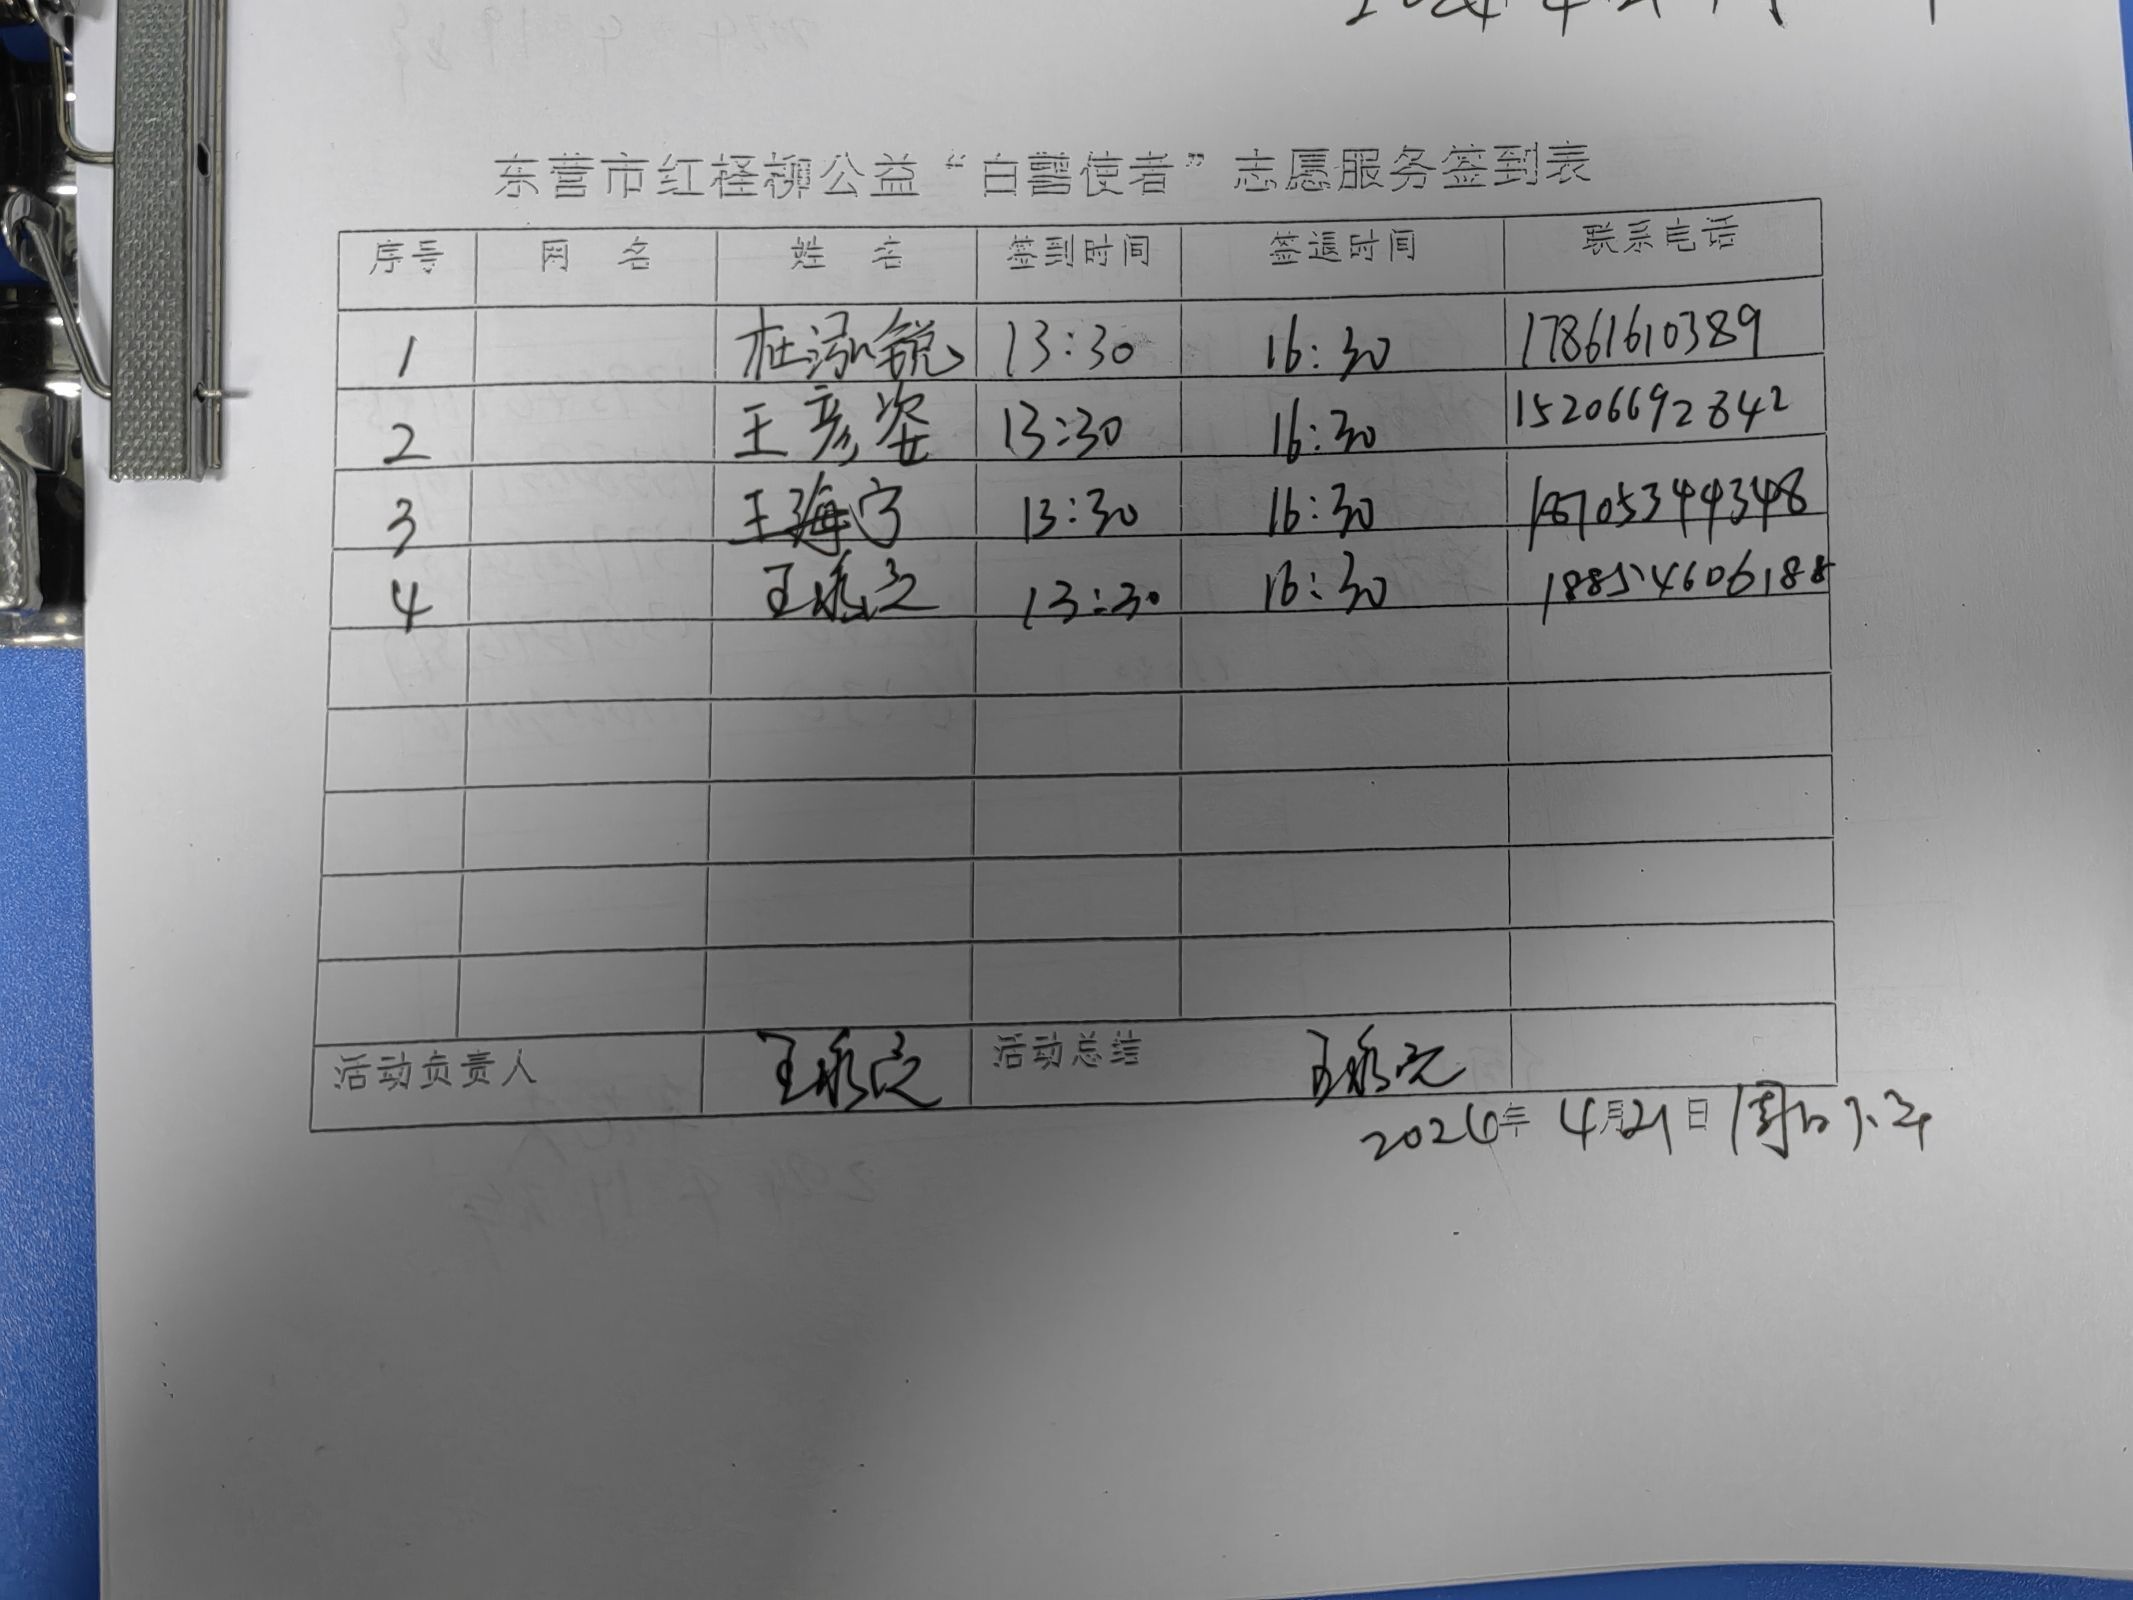 东营市红柽柳公益“白鹭使者”志愿服务签到表
序号 网 名 姓 名 签到时间 签退时间 联系电话
1 杜泓锐 13:30 16:30 17861610389
2 王彦姿 13:30 16:30 15206692842
3 王海宁 13:30 16:30 18705344348
4 王 13:30 16:30 18854606188
活动负责人 王 活动总结 王
2024年 4月21日 周日下午